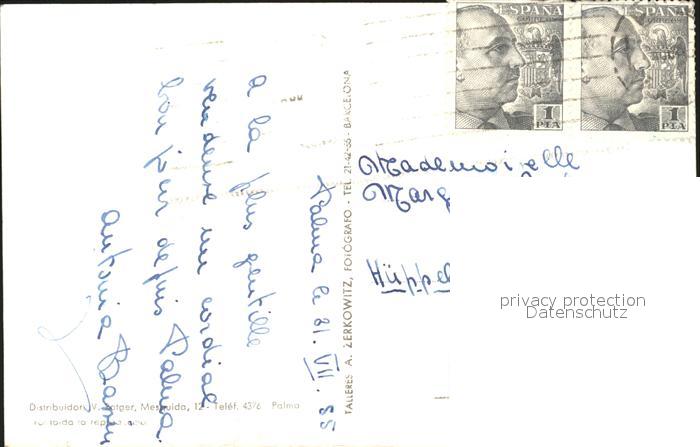 ESPAÑA
CORREOS
1
PTA
ESPAÑA
CORREOS
1
PTA
Palma le 21. VII. 55
a la plus gentille
vendeuse un cordial
bon jour depuis Palma.
Antonia
Mademoiselle
Marg
Hüppel
TALLERES A. ZERKOWITZ, FOTÓGRAFO - TEL. 21-42-55 - BARCELONA
Distribuidor: V. Rotger, Mesquida, 12 - Teléf. 4376 Palma
privacy protection
Datenschutz